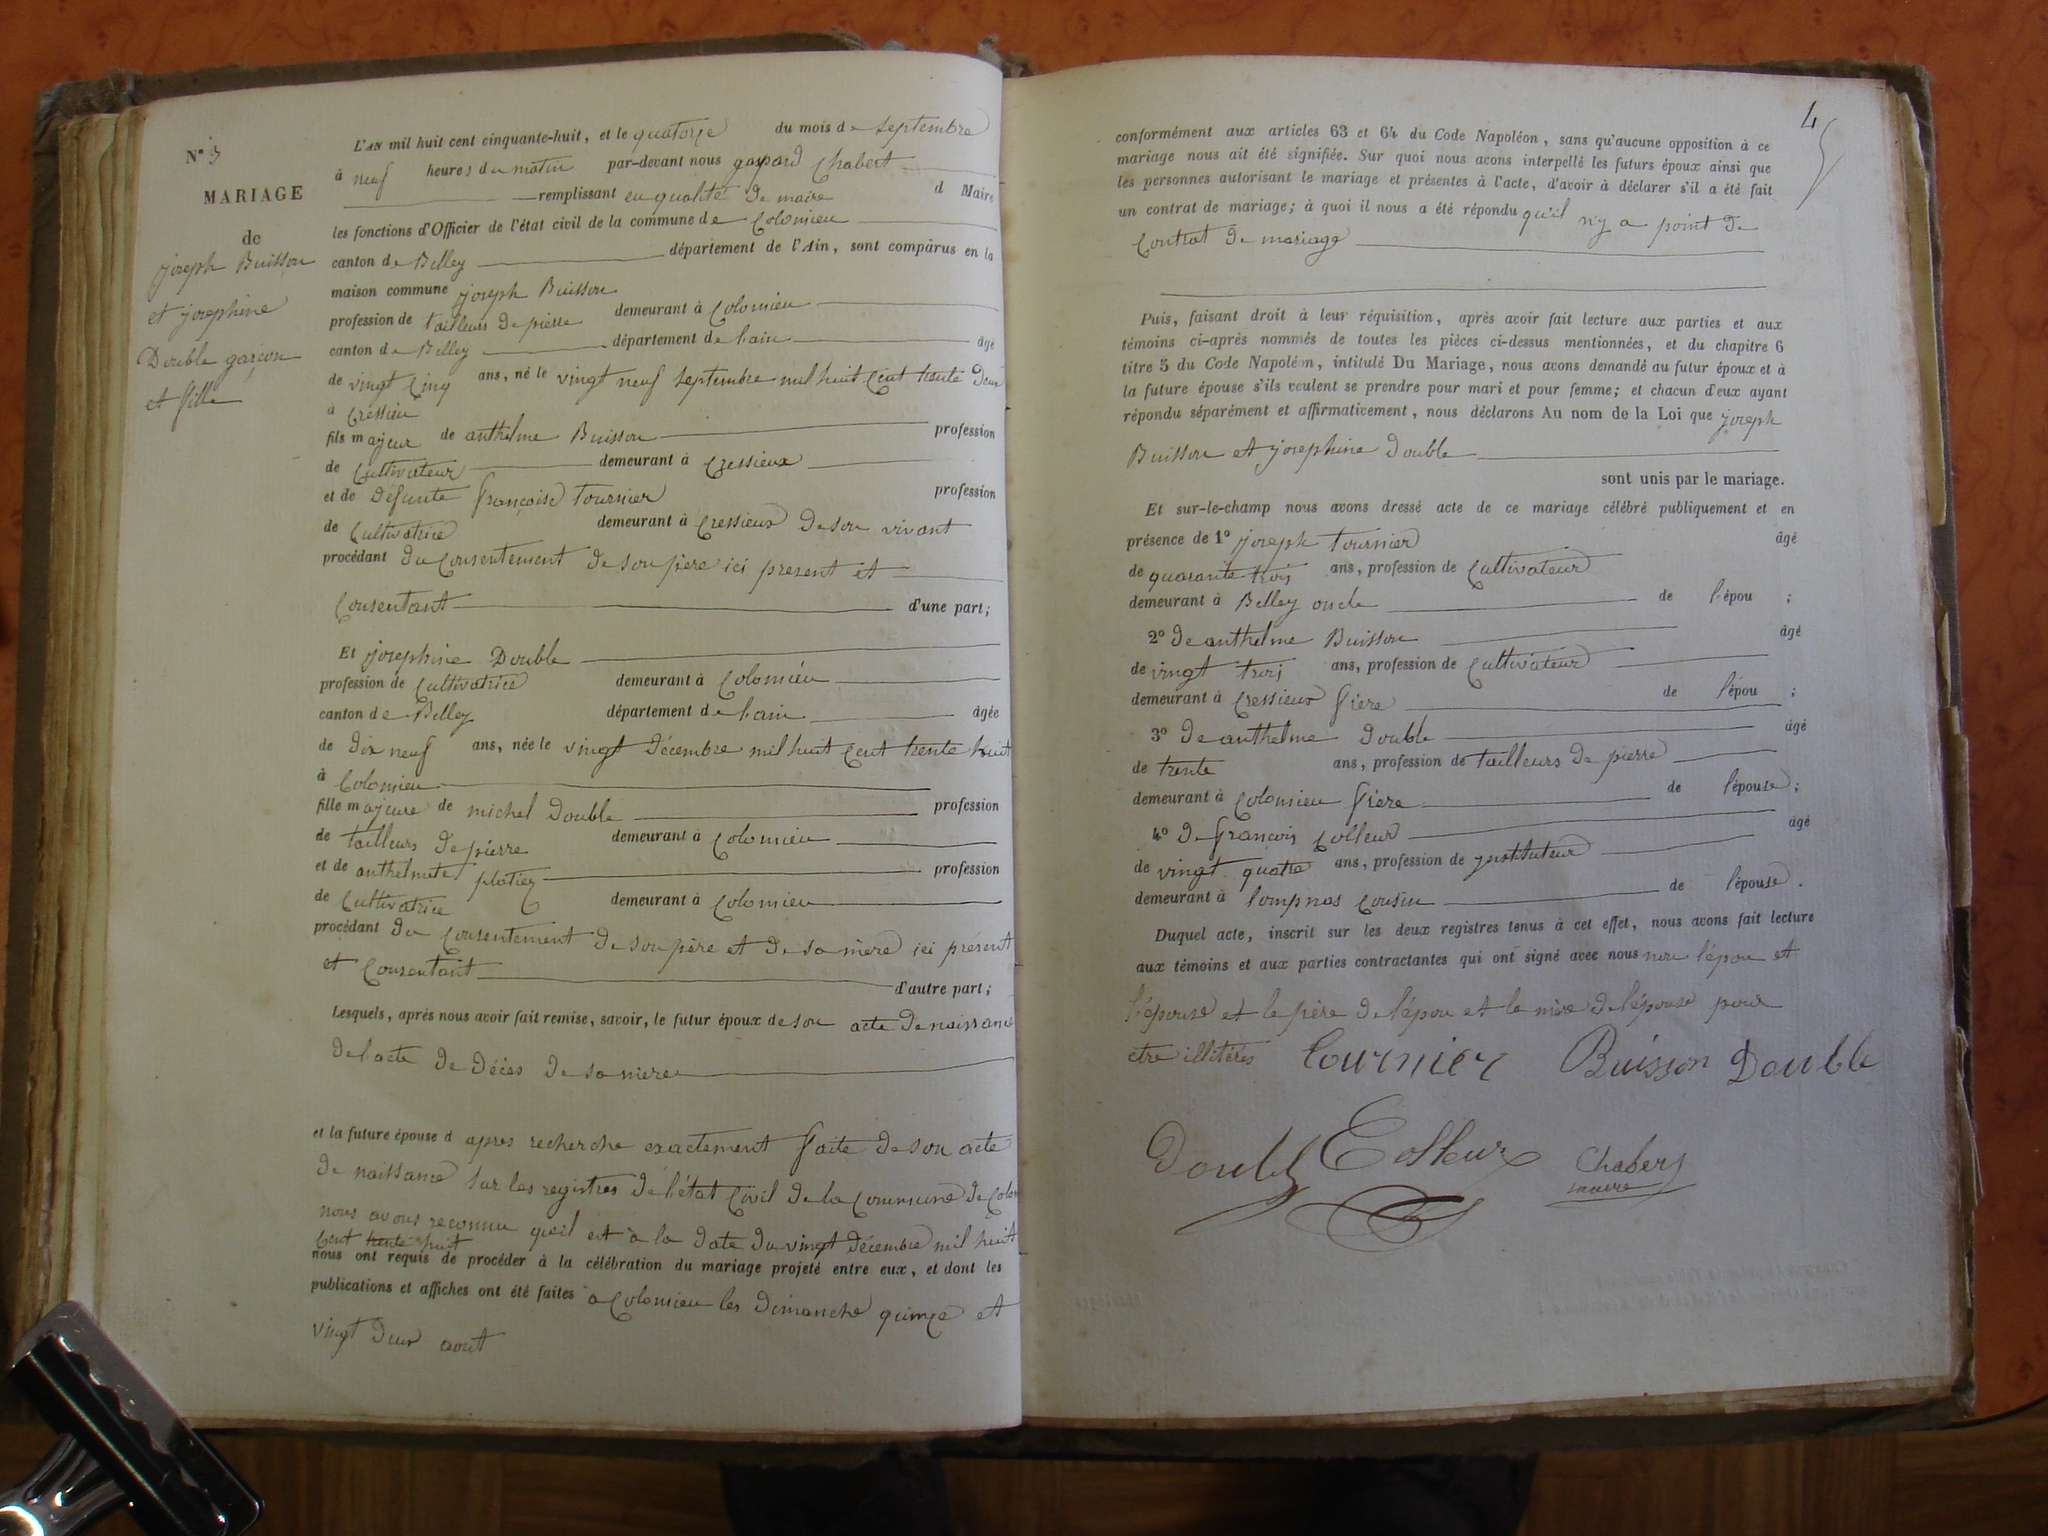 N° 3
MARIAGE
de
joseph Buisson
et josephine
Double garçon
et fille
L'AN mil huit cent cinquante-huit, et le quatorze du mois de septembre
à neuf heures du matin par-devant nous gaspard Chabert
remplissant en qualité de maire d Maire
les fonctions d'Officier de l'état civil de la commune de Colomieu
canton de Belley département de l'Ain, sont comparus en la
maison commune joseph Buisson
profession de tailleurs de pierre demeurant à Colomieu
canton de Belley département de lain âgé
de vingt Cinq ans, né le vingt neuf septembre mil huit Cent trente deux
à Cressieu
fils majeur de anthelme Buisson profession
de Cultivateur demeurant à Cressieux
et de défunte françoise tournier profession
de Cultivatrice demeurant à Cressieux de son vivant
procédant du Consentement de son père ici present et
Consentant d'une part;
Et josephine Double
profession de Cultivatrice demeurant à Colomieu
canton de Belley département de lain âgée
de dix neuf ans, née le vingt décembre mil huit Cent trente huit
à Colomieu
fille majeure de michel Double profession
de tailleurs de pierre demeurant à Colomieu
et de anthelmete platier profession
de Cultivatrice demeurant à Colomieu
procédant du Consentement de son père et de sa mère ici présent
et Consentant d'autre part;
Lesquels, après nous avoir fait remise, savoir, le futur époux de son acte de naissance
de l'acte de décès de sa mere
et la future épouse d apres recherche exactement faite de son acte
de naissance sur les registres de l'état Civil de la Commune de Colom
nous avons reconnu qu'il est à la date du vingt décembre mil huit
Cent trente huit
nous ont requis de procéder à la célébration du mariage projeté entre eux, et dont les
publications et affiches ont été faites a Colomieu les dimanche quinze et
vingt deux aout
4
conformément aux articles 63 et 64 du Code Napoléon, sans qu'aucune opposition à ce
mariage nous ait été signifiée. Sur quoi nous avons interpellé les futurs époux ainsi que
les personnes autorisant le mariage et présentes à l'acte, d'avoir à déclarer s'il a été fait
un contrat de mariage; à quoi il nous a été répondu qu'il n'y a point de
Contrat de mariage
Puis, faisant droit à leur réquisition, après avoir fait lecture aux parties et aux
témoins ci-après nommés de toutes les pièces ci-dessus mentionnées, et du chapitre 6
titre 5 du Code Napoléon, intitulé Du Mariage, nous avons demandé au futur époux et à
la future épouse s'ils veulent se prendre pour mari et pour femme; et chacun d'eux ayant
répondu séparément et affirmativement, nous déclarons Au nom de la Loi que joseph
Buisson et josephine double
sont unis par le mariage.
Et sur-le-champ nous avons dressé acte de ce mariage célébré publiquement et en
présence de 1° joseph tournier âgé
de quarante trois ans, profession de Cultivateur
demeurant à Belley oncle de l'épou ;
2° de anthelme Buisson âgé
de vingt trois ans, profession de Cultivateur
demeurant à Cressieux frère de l'épou ;
3° de anthelme double âgé
de trente ans, profession de tailleurs de pierre
demeurant à Colomieu frère de l'épouse;
4° de françois Colleur âgé
de vingt quatre ans, profession de instituteur
demeurant à Lompnas Cousin de l'épouse.
Duquel acte, inscrit sur les deux registres tenus à cet effet, nous avons fait lecture
aux témoins et aux parties contractantes qui ont signé avec nous non l'épou et
l'épouse et le père de l'épou et la mère de l'épouse pour
etre illitérés Tournier Buisson Double
Double Colleur Chabert
maire